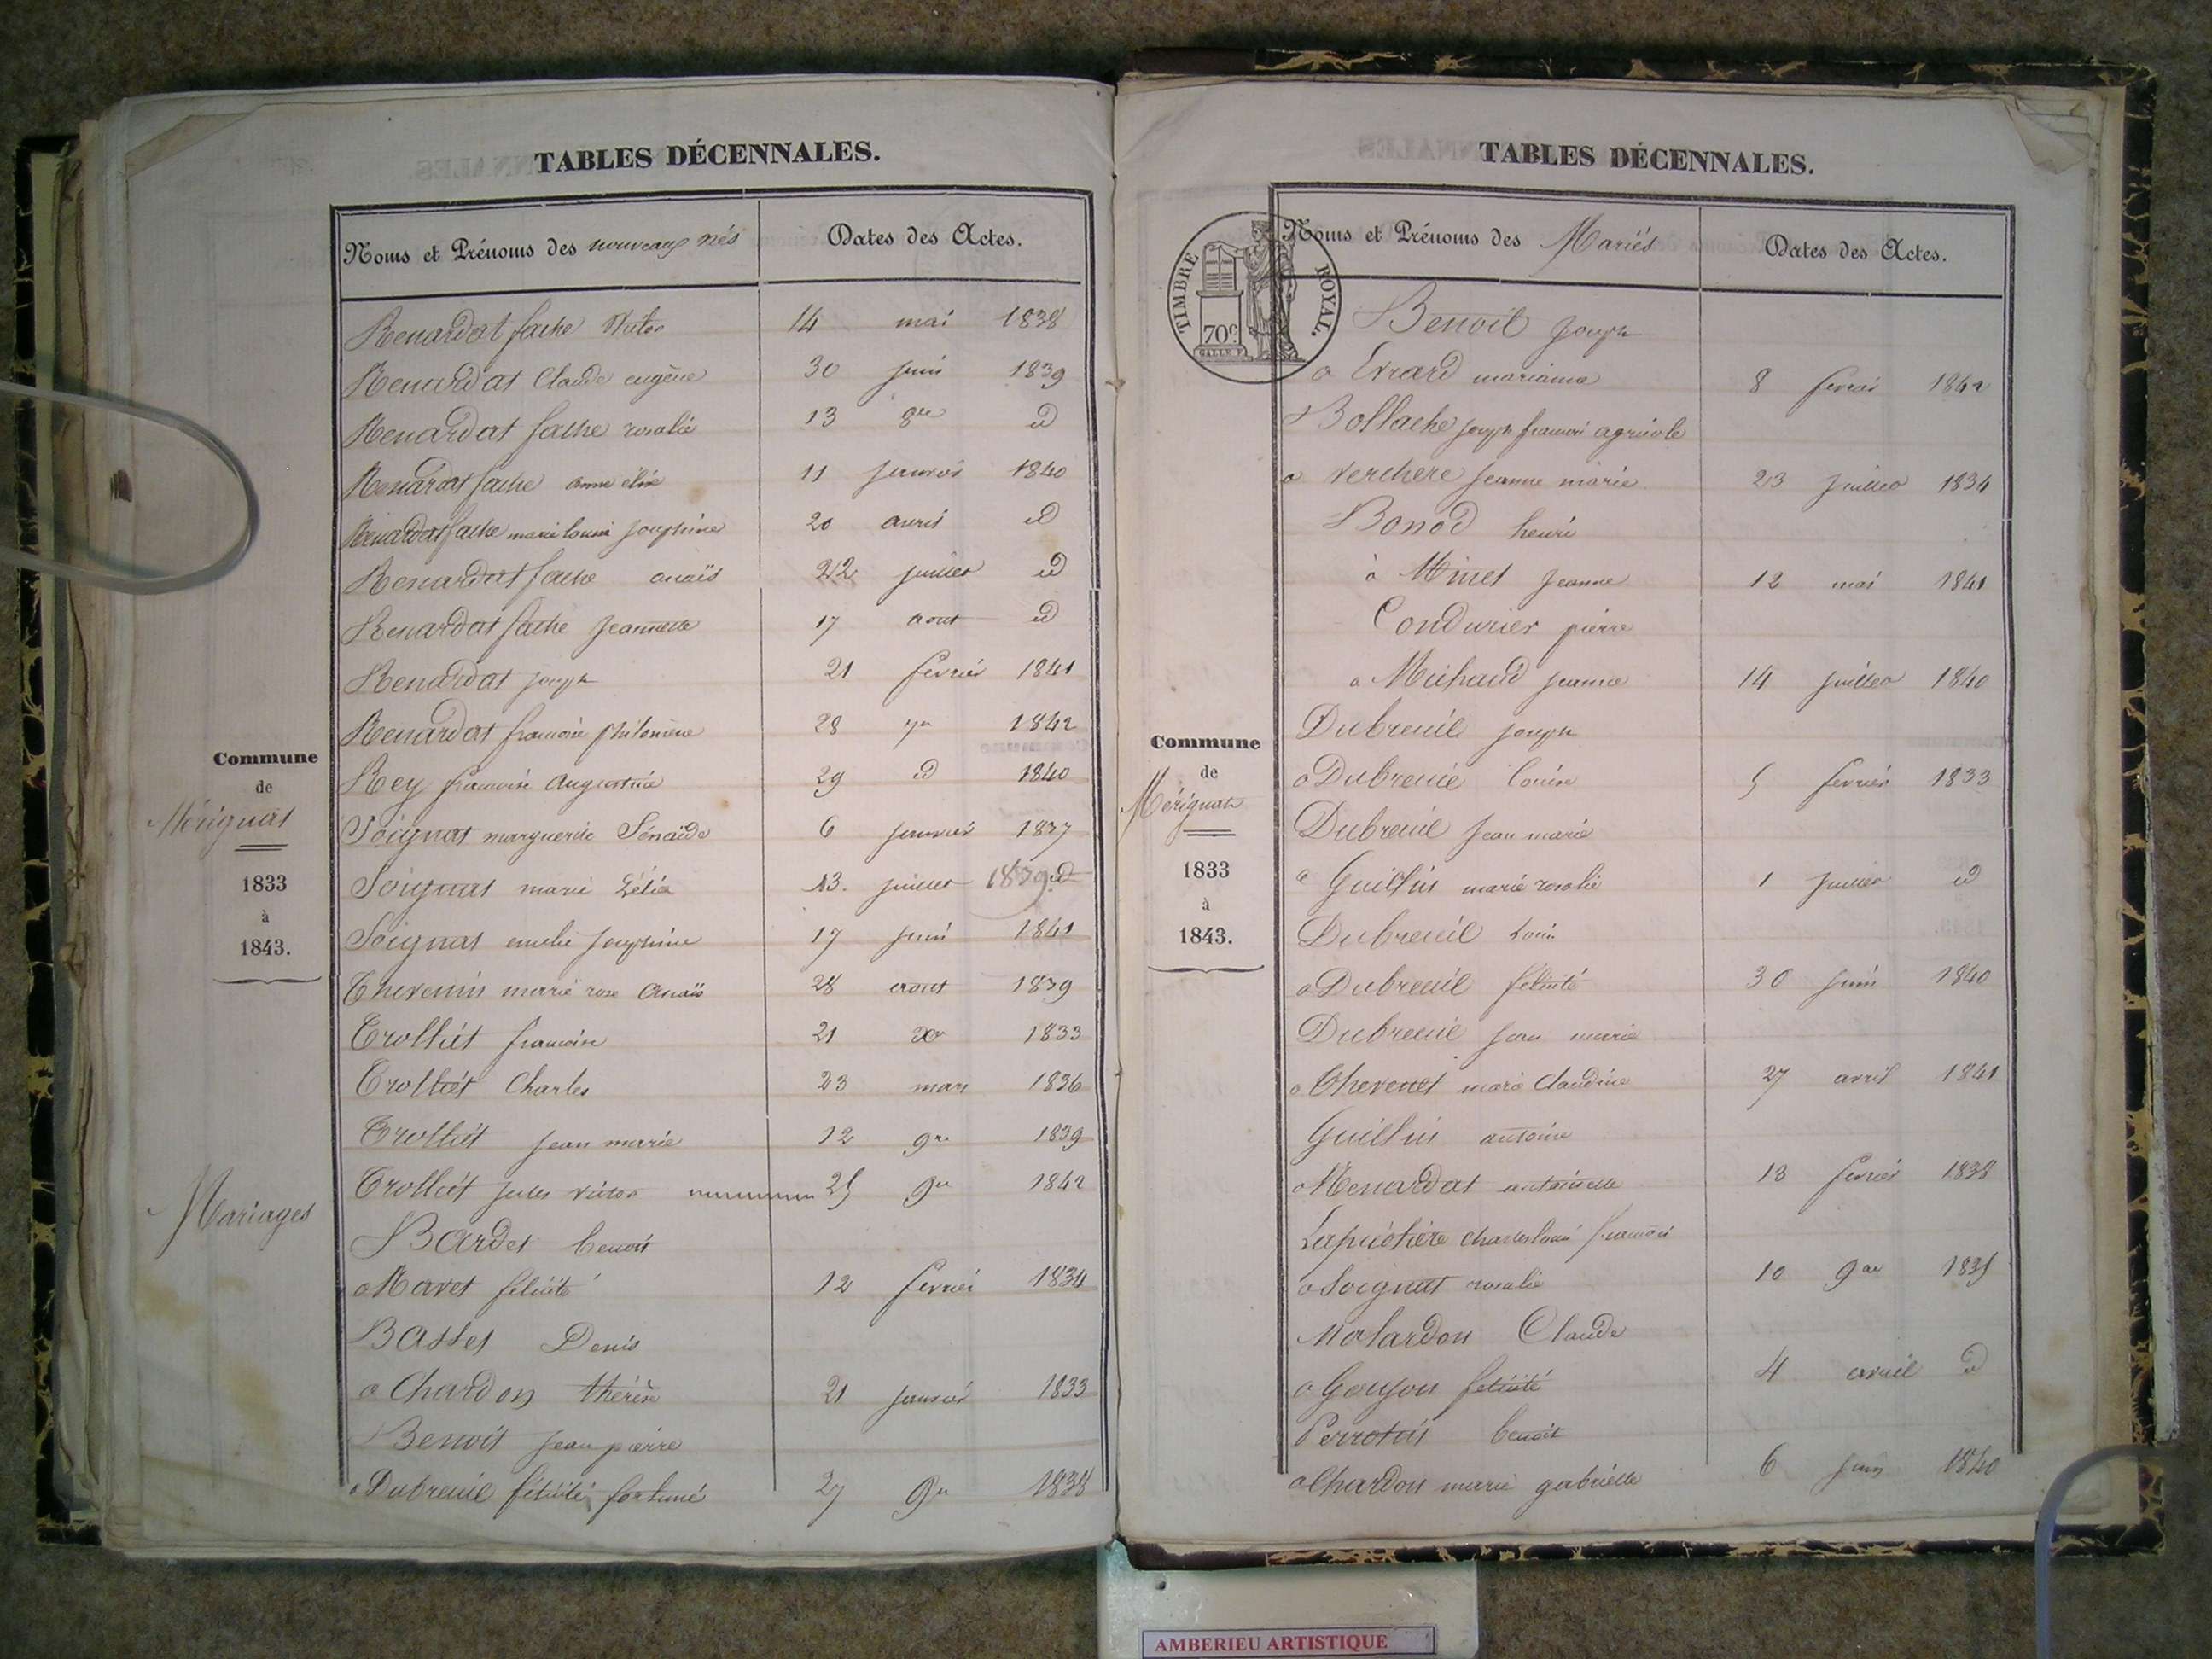 TABLES DÉCENNALES.
Noms et Prénoms des nouveaux nés
Dates des Actes.
Renardat fache Victor 14 mai 1838
Renardat Claude eugène 30 juin 1839
Renardat fache rosalie 13 8re id
Renardat fache anne élise 11 Janvier 1840
Renardat fache marie louise Josephine 20 avril id
Renardat fache anaïs 22 juillet id
Renardat fache Jeannette 17 aout id
Renardat joseph 21 fevrier 1841
Renardat francoise philomène 28 7re 1842
Rey francoise Augustine 29 id 1840
Soignat marguerite Sénaïde 6 janvier 1837
Soignat marie Zélia 13. juillet 1839 id
Soignat emelie Josephine 17 juin 1841
Thevenin marie rose Anaïs 28 aout 1839
Trolliet francoise 21 Xre 1833
Trolliet Charles 23 mars 1836
Trolliet jean marie 12 9re 1839
Trolliet jules victor 25 9re 1842
Commune
de
Mérignat
1833
à
1843.
Mariages
Bardet benoit
a Mavet felicité 12 fevrier 1834
Basset Denis
a Chardon thérèse 21 janvier 1833
Benoit jean pierre
a Dubreuil félicité fortuné 27 9re 1838
TABLES DÉCENNALES.
Noms et Prénoms des Mariés
Dates des Actes.
TIMBRE ROYAL.
70c.
Benoit Joseph
a Evrard marianne 8 fevrier 1842
Bollache joseph francois agricole
a Verchere Jeanne marie 23 Juillet 1834
Bonod henri
à Minet Jeanne 12 mai 1841
Condurier pierre
a Michaud jeanne 14 juillet 1840
Dubreuil joseph
a Dubreuil louise 5 fevrier 1833
Dubreuil Jean marie
a Guillin marie rosalie 1 Juillet id
Dubreuil Louis
a Dubreuil félicité 30 Juin 1840
Dubreuil Jean marie
a Thevenet marie Claudine 27 avril 1841
Guillin antoine
a Renardat antoinette 13 fevrier 1838
Lapierre charles louis francois
a Soignat rosalie 10 9bre 1835
Molardon Claude
a Goujon felicité 4 avril id
Perrotin benoit
a Chardon marie gabrielle 6 Juin 1840
Commune
de
Mérignat
1833
à
1843.
AMBERIEU ARTISTIQUE